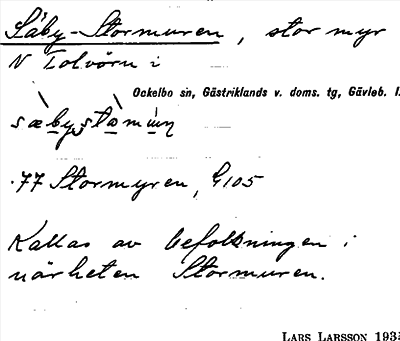 Säby-Stormuren, stor myr
N Tolvörn i
Ockelbo sn, Gästriklands v. doms. tg, Gävleb. l.
77 Stormyren, G105
Kallas av befolkningen i
närheten Stormuren.
LARS LARSSON 1935